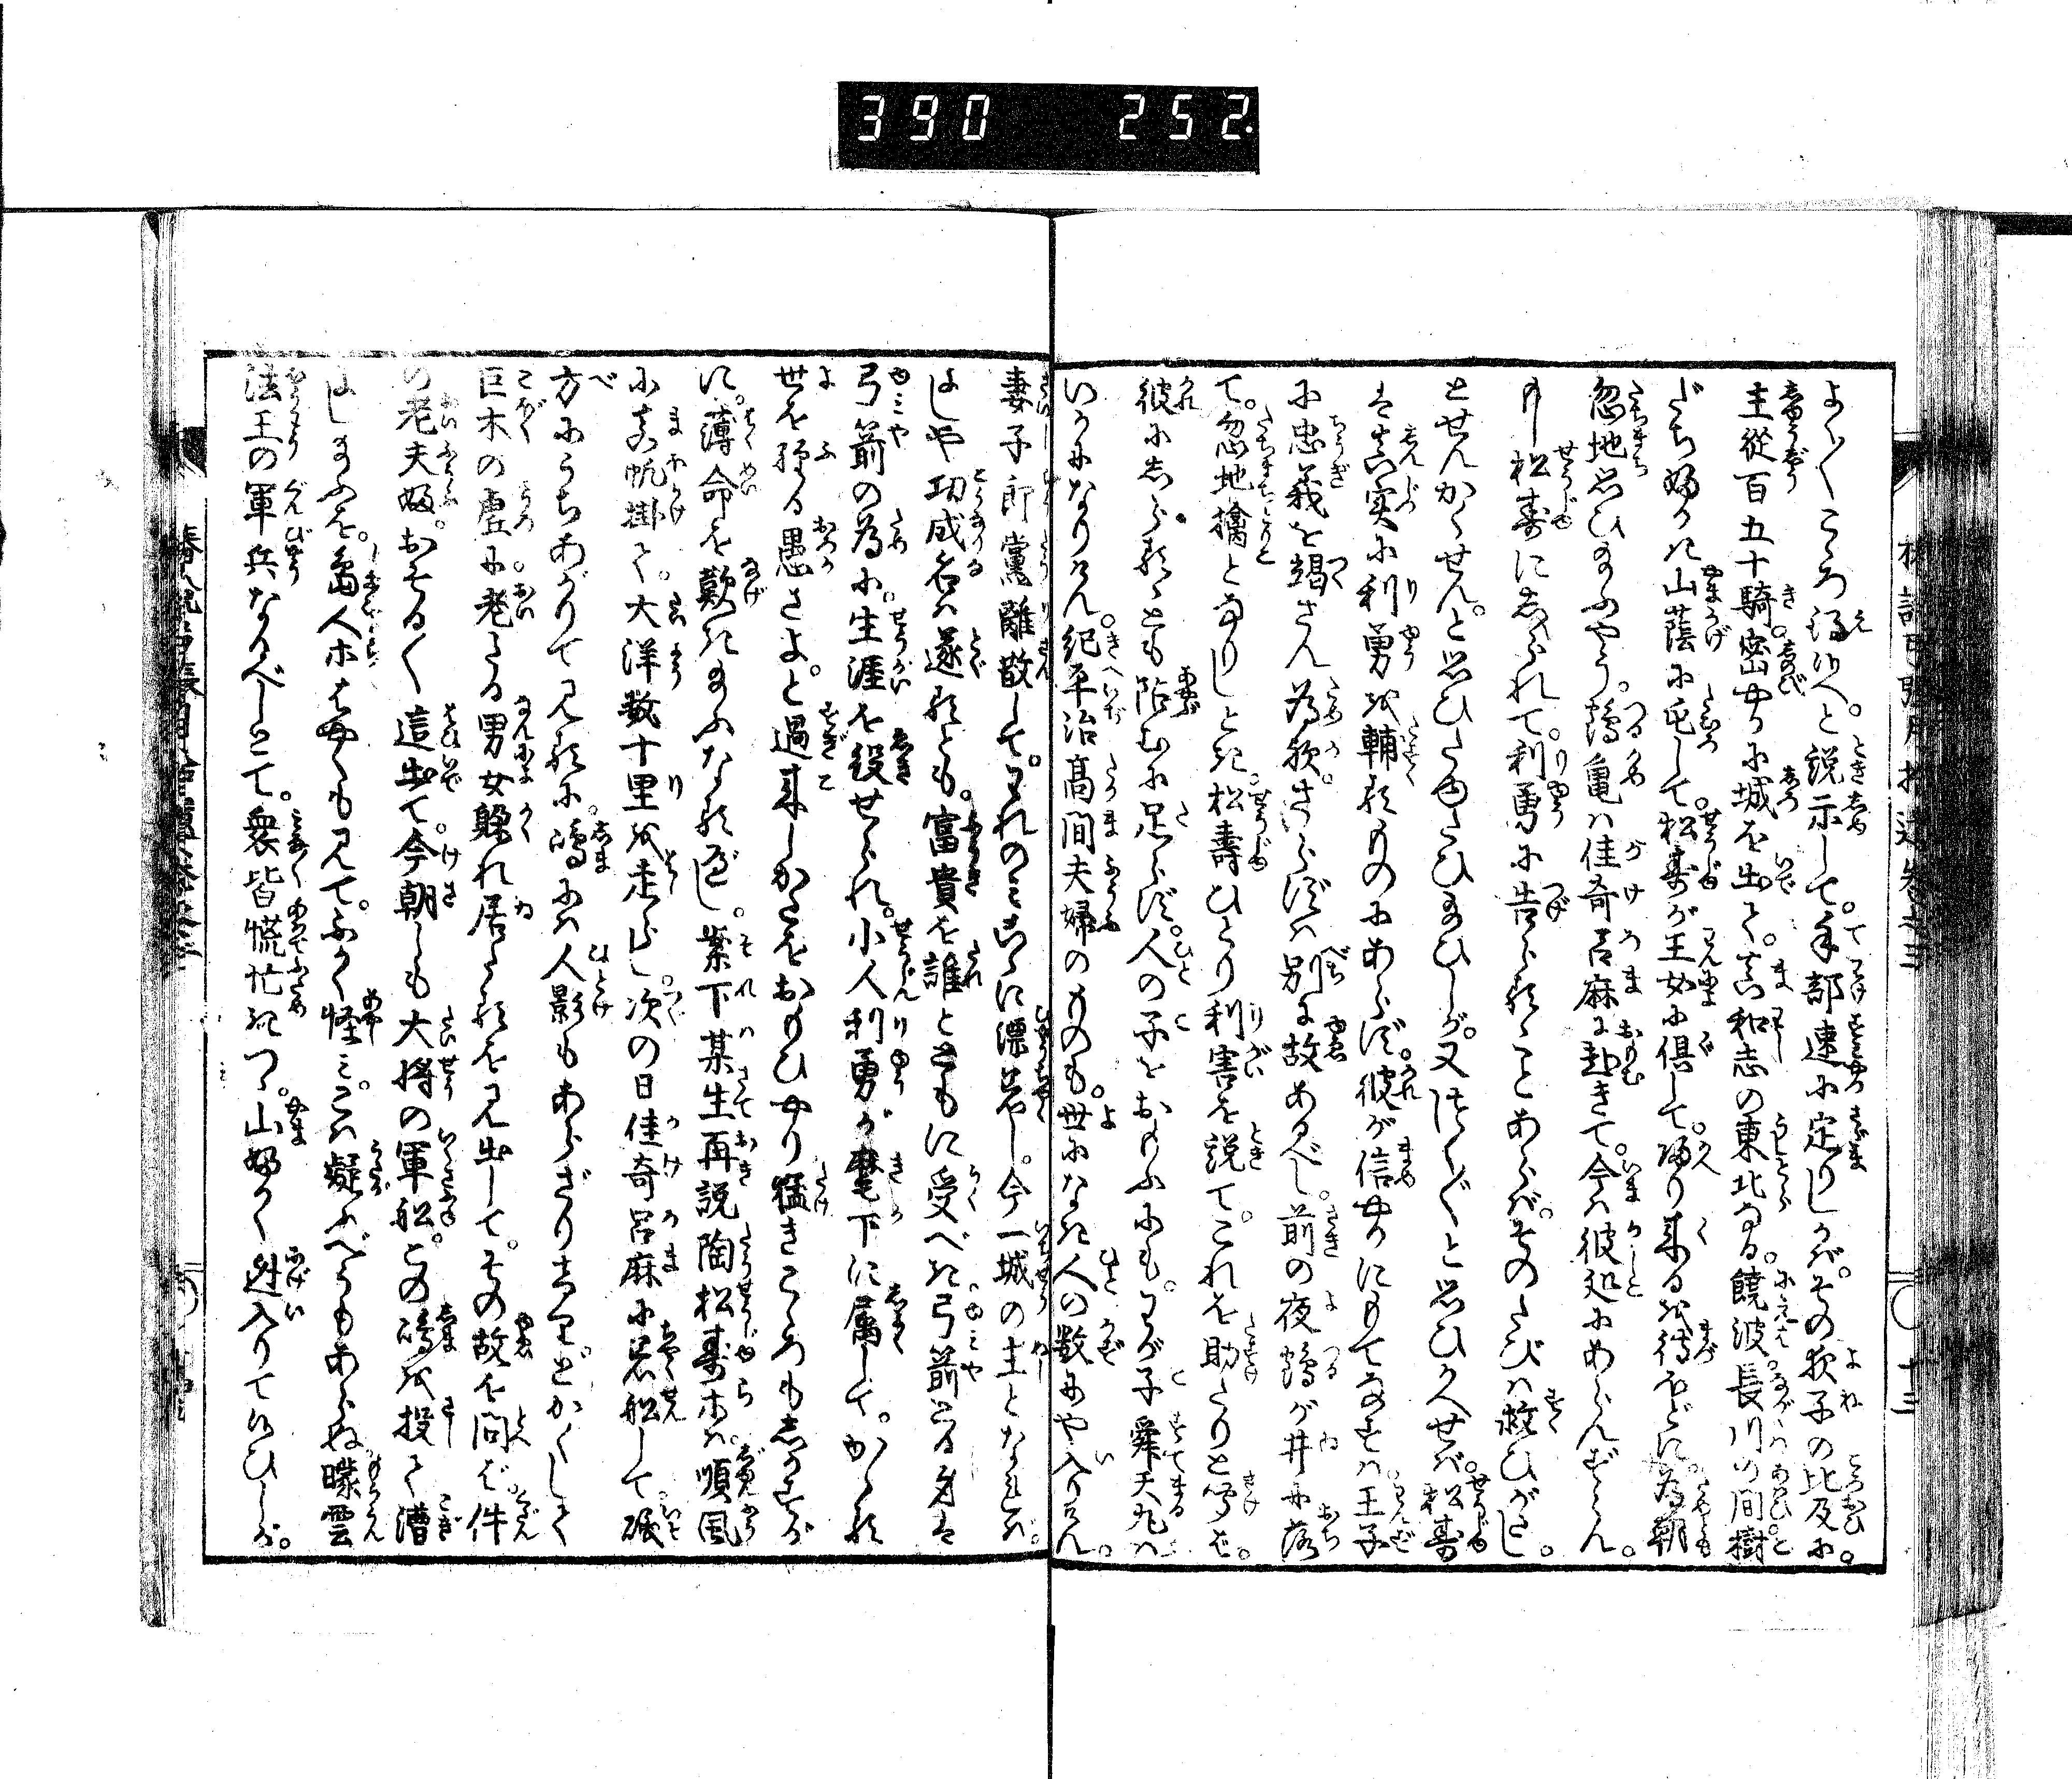 390 252.
よく〳〵こゝろ得候へ。と説示して。手部速に定りしかば。その夜子の比及に。
主従百五十騎。密やかに城を出て。真和志の東北なる。饒波長川の間樹
だち姉かき山蔭に屯して。松寿が王女に倶して。帰り来るを待ほどに。為朝
忽地思ひ給ふやう。鶴亀は佳奇呂麻に赴きて。今は彼処にあらんずらん。
もし松寿にしられて。利勇に告らるゝことあらば。そのたびは救ひがたし。
とせんかくせん。と思ひたゆたひ給ひしが。又つく〴〵と思ひかへせば。松寿
は真実に利勇を輔るものにあらず。彼が信やかにもてなすは。王子
に忠義を竭さん為歟。さらずは別に故あるべし。前の夜鶴が井に落
て。忽地擒となりしとき。松寿ひとり利害を説て。これを助たりと聞ば。
彼にしらるゝとも陥むに足らず。人の子をおもふにも。わが子舜天丸は
いかになりけん。紀平治高間夫婦のものも。世になき人の数にや入りけん。
妻子郎党離散して。われのみこゝに漂泊し。今一城の主となれるは。
はしや功成名は遂るとも。富貴を誰とともに受べき弓箭とる身は
弓箭の為に。生涯を役せられ。小人利勇が麾下に属して。かゝる
世を経る愚さよ。と過来しかたをおもひやり猛きこゝろもしかすが
に。薄命を歎き給ふなるべし。案下某生再説陶松寿ホは。順風
に真帆掛て。大洋数十里を走らし。次の日佳奇呂麻に着船して。礒
方にうちあがりて見るに。嶋には人影もあらざりけり。とかくして
巨木の虚に。老たる男女躱れ居たるを見出して。その故を問ば。件
の老夫婦。おそる〳〵這出て。今朝しも大将の軍船。この嶋を投て漕
はし給ふを。島人ホはやくも見て。ふかく怪み。こは疑ふべうもあらぬ曚雲
法王の軍兵なるべしとて。衆皆慌忙きつゝ。山ふかく迯入りて候ひしが。